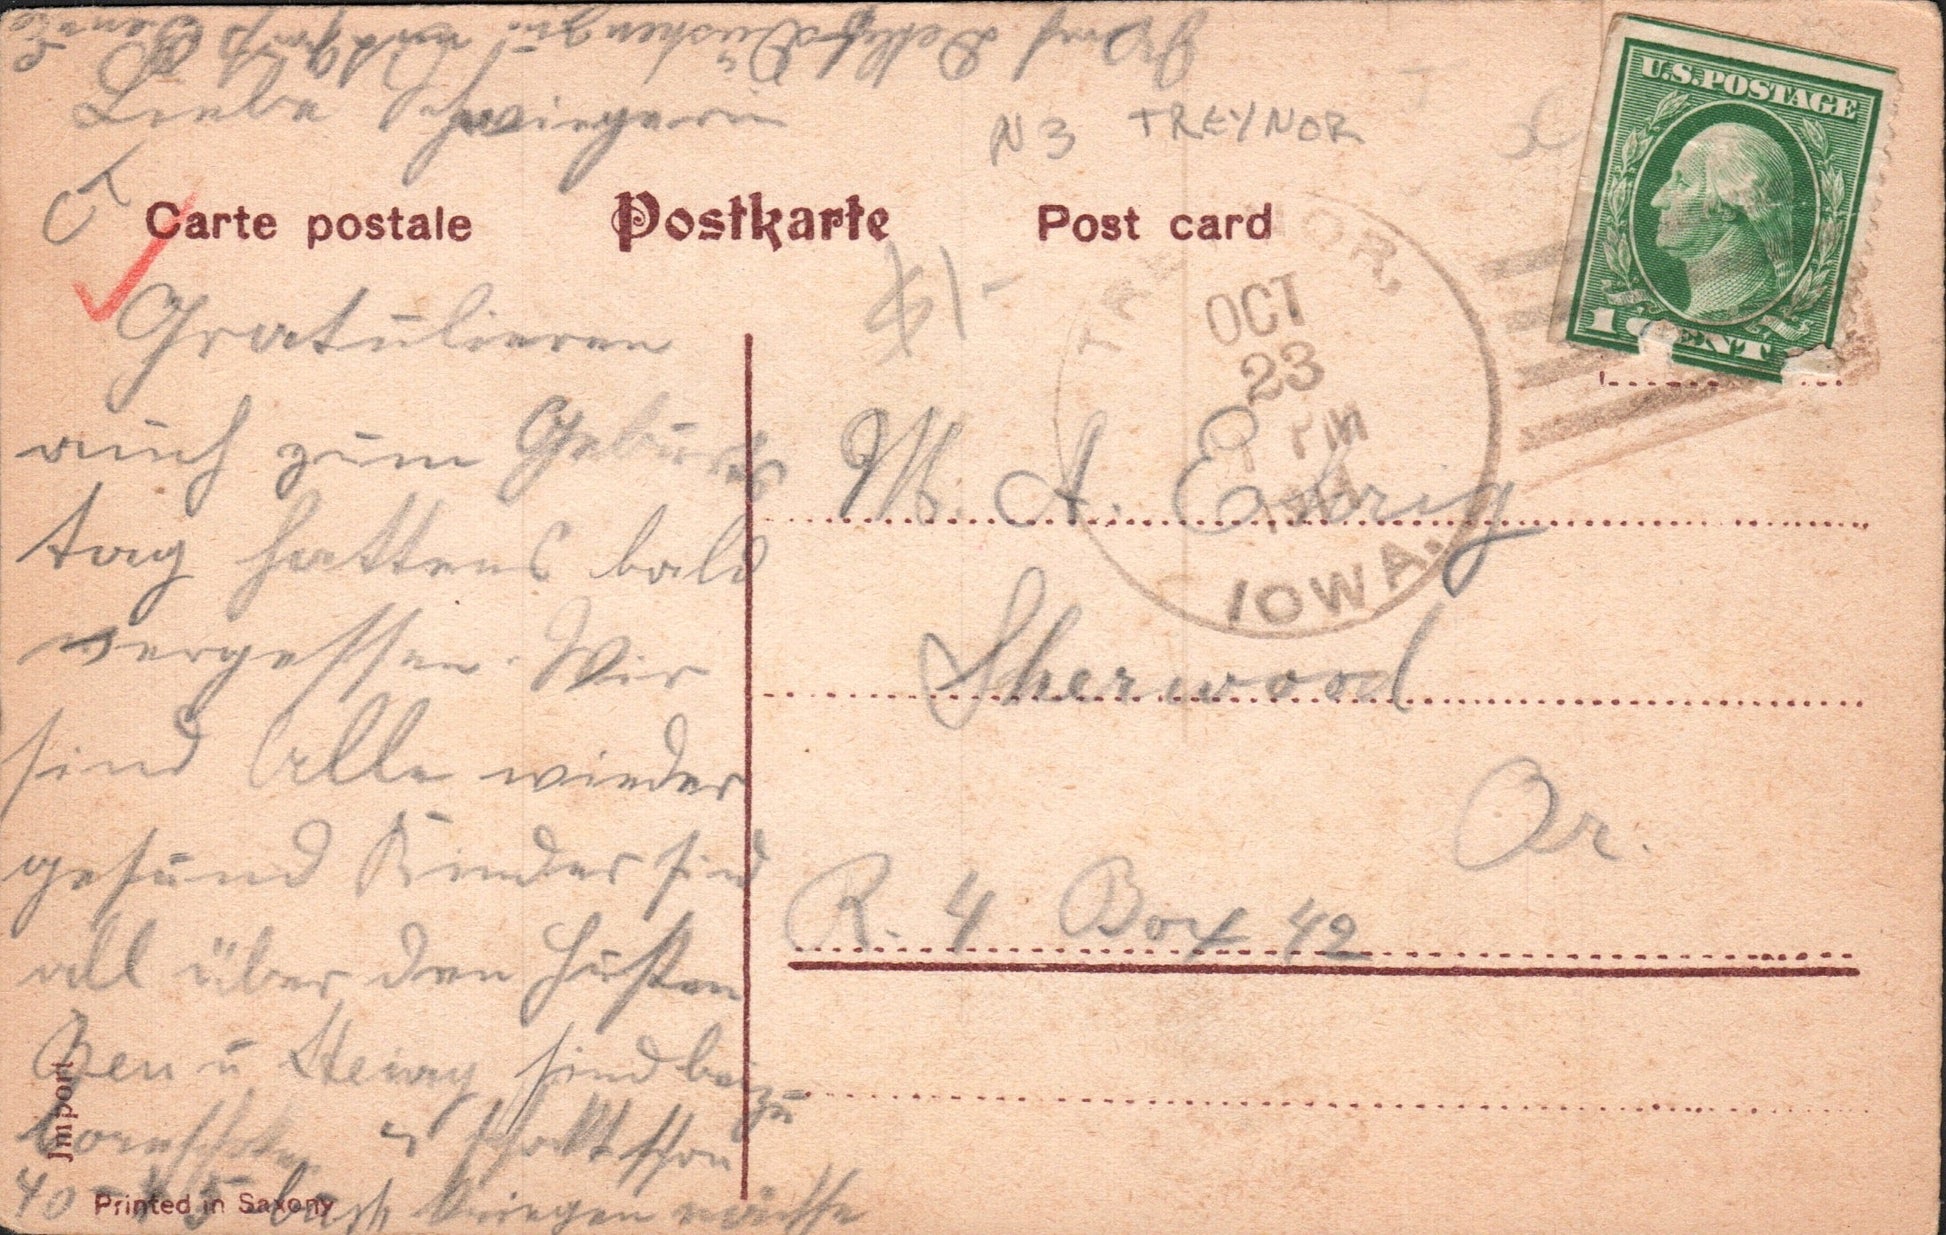 Liebe Schwiegerin
N 3 TREYNOR
CT
Carte postale Postkarte Post card
U.S. POSTAGE
1 CENT
TREYNOR,
OCT
23
PM
IOWA.
$1-
Gratulieren
auch zum Geburts
tag hattens bald
vergessen. Wir
sind Alle wieder
gesund Kinder sind
all über den Husten
Ben u
sind
u schon
40 - 45
kriegen
M. A. Ehrig
Sherwood
Or.
R. 4 Box 42
Import
Printed in Saxony